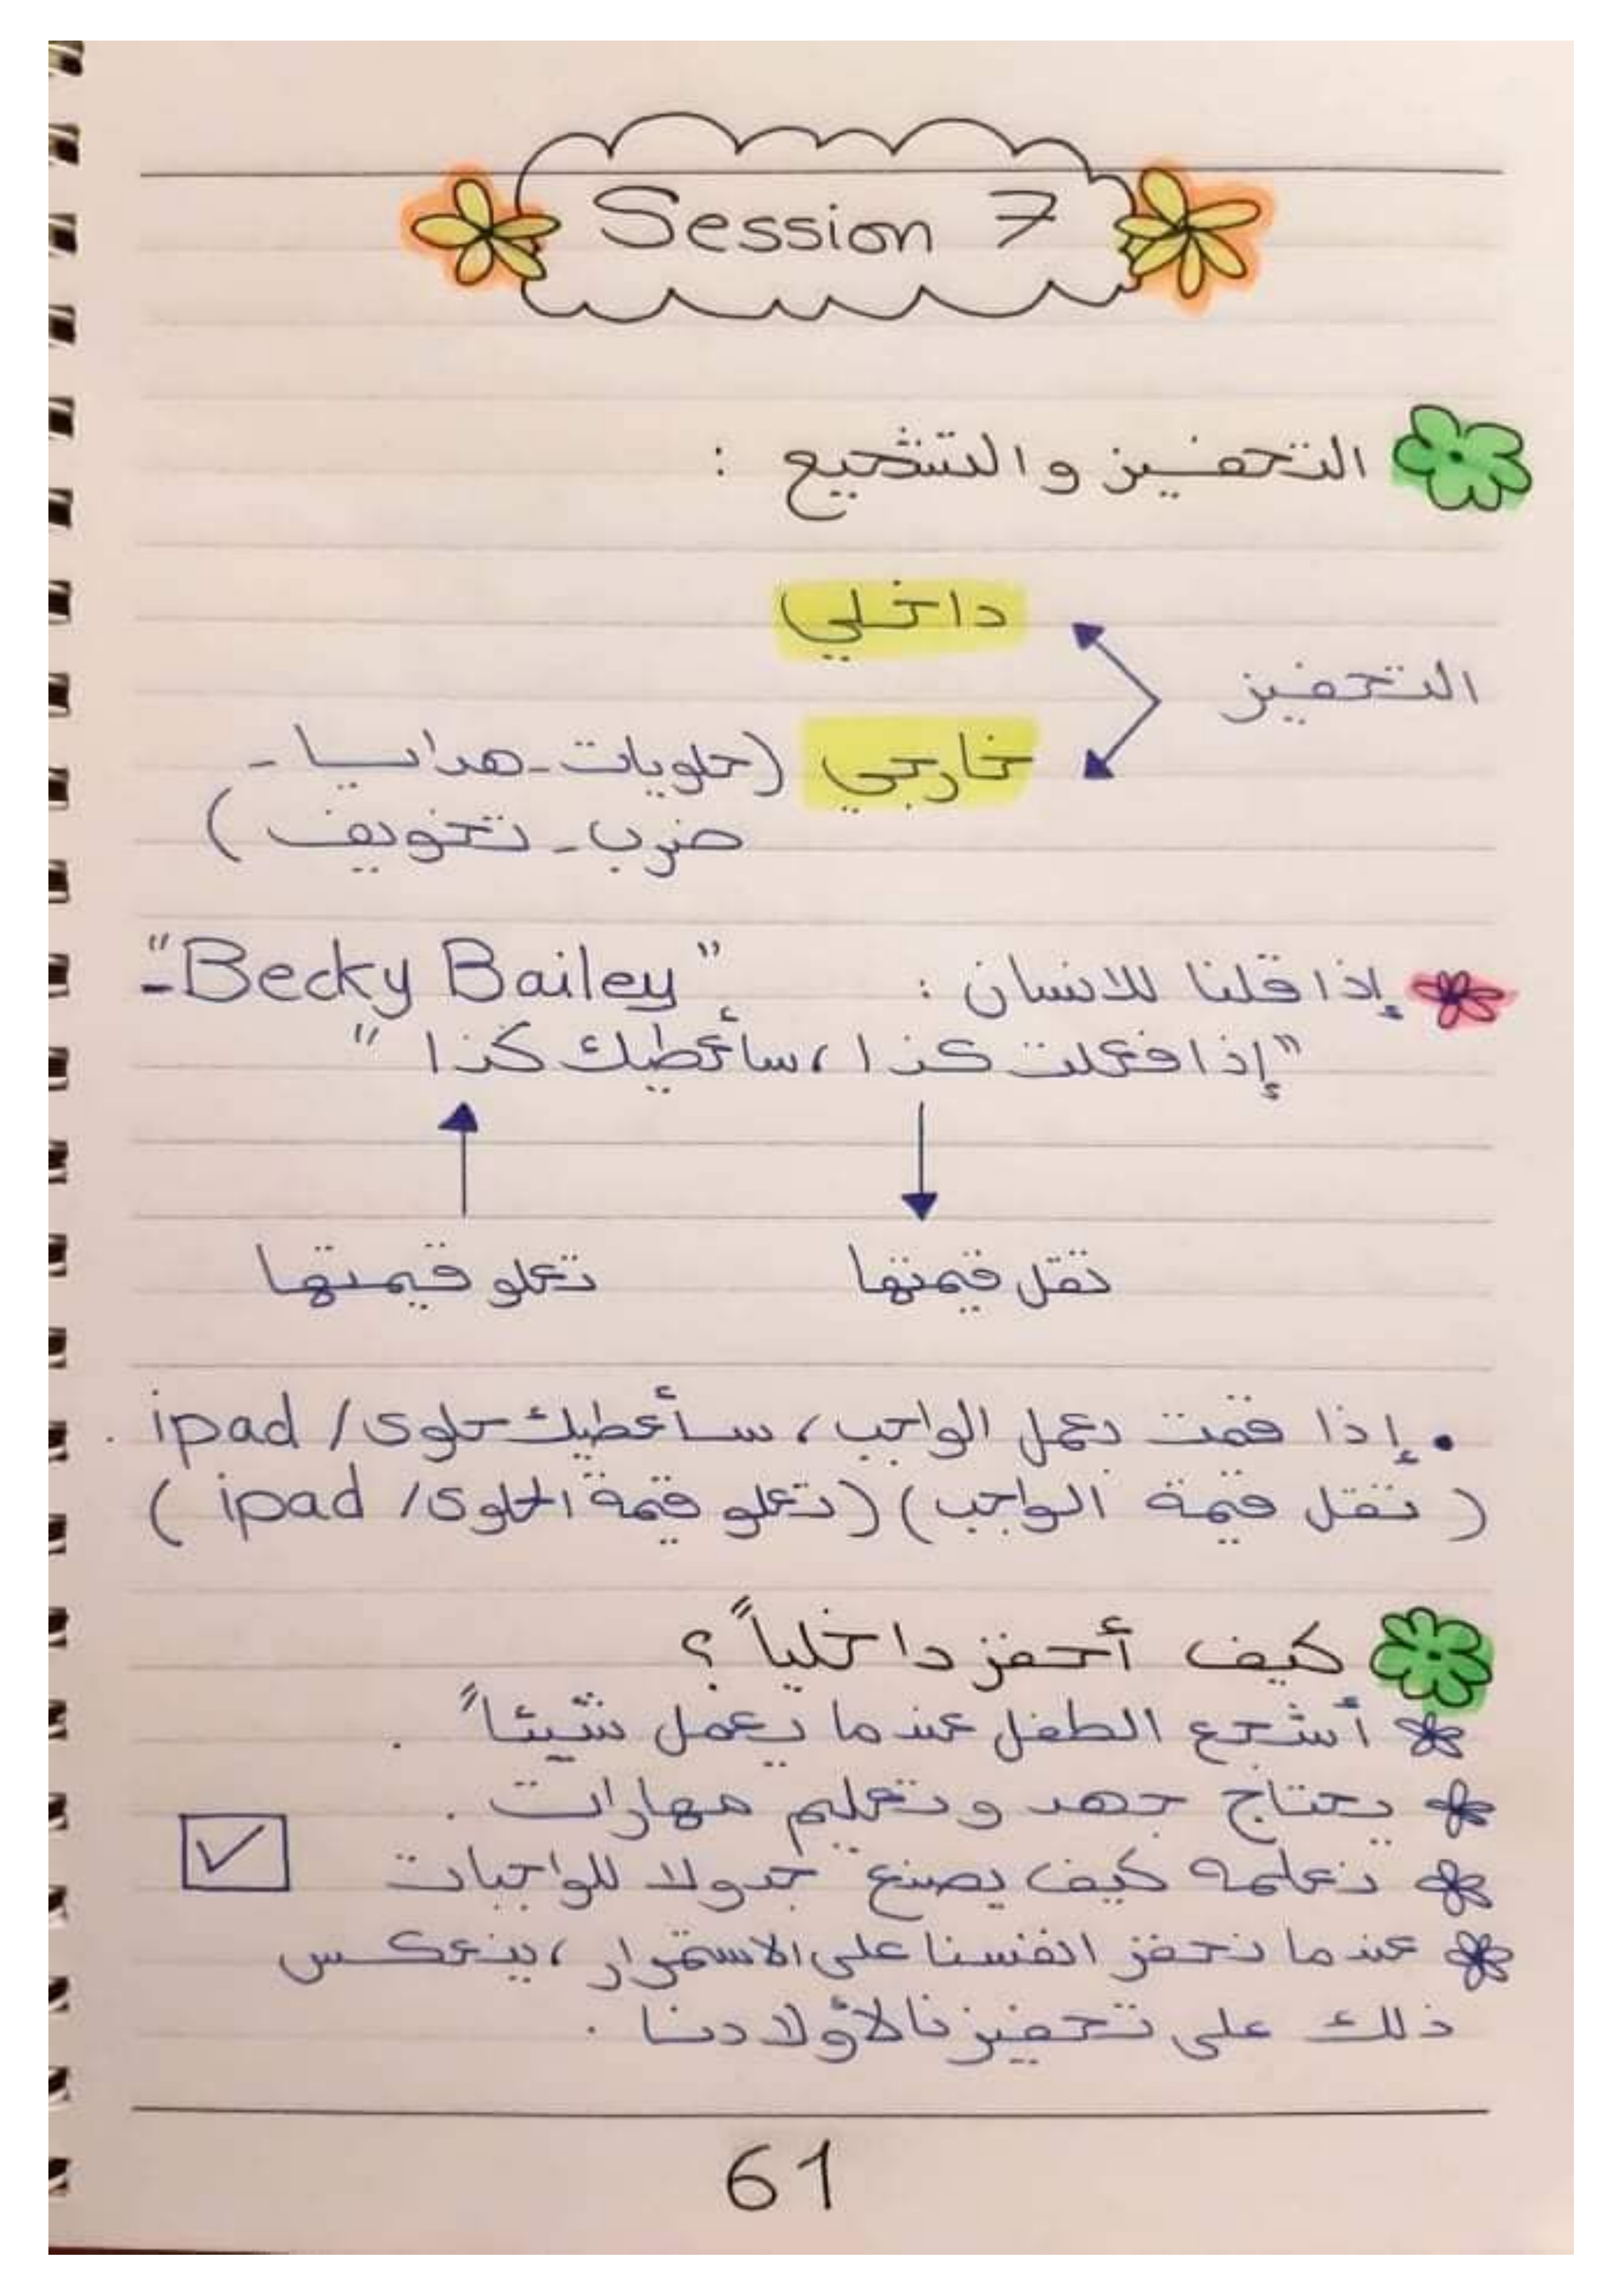 Session 7
التحفيز والتشجيع :
داخلي
التحفيز
خارجي (حلويات - هدايا -
ضرب - تخويف )
إذا قلنا للانسان : "Becky Bailey" -
"إذا فعلت كذا ، سأعطيك كذا "
تقل قيمتها تعلو قيمتها
. إذا قمت بعمل الواجب ، سأعطيك حلوى / ipad .
( تقل قيمة الواجب ) ( تعلو قيمة الحلوى / ipad )
كيف أحفز داخلياً ؟
أشجع الطفل عندما يعمل شيئاً .
يحتاج جهد وتعليم مهارات .
نعلمه كيف يصنع جدولا للواجبات
عندما نحفز انفسنا على الاستمرار ، ينعكس
ذلك على تحفيزنا لأولادنا .
61